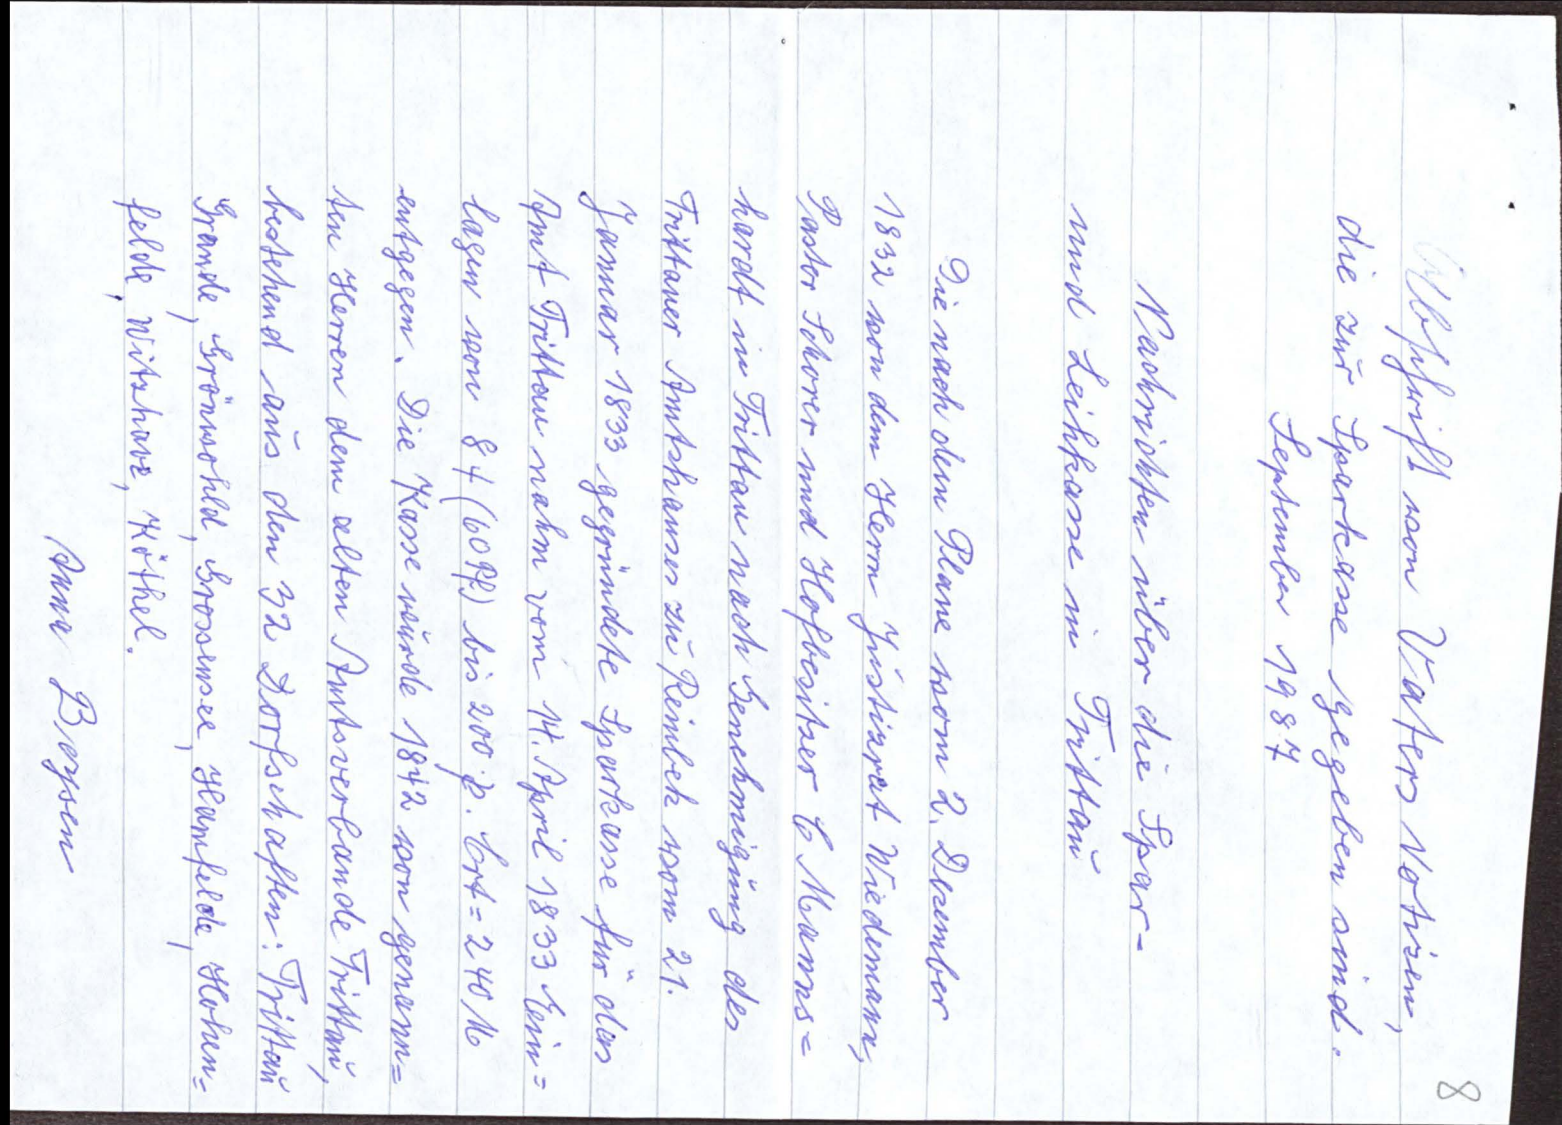 8
Abschrift von Vaters Notizen,
die zur Sparkasse gegeben sind.
September 1987
Nachrichten über die Spar-
und Leihkasse in Trittau
Die nach dem Plane vom 2. Dezember
1832 von dem Herrn Justizrat Wiedemann,
Pastor Schorer und Hofbesitzer C Manns=
hardt in Trittau nach Genehmigung des
Trittauer Amtshauses zu Reinbek vom 21.
Januar 1833 gegründete Sparkasse für das
Amt Trittau nahm vom 14. April 1833 Ein=
lagen von 8 (60 Pf) bis 200 Crt = 240 M
entgegen. Die Kasse wurde 1842 von genann=
ten Herren dem alten Amtsverbande Trittau,
bestehend aus den 32 Dorfschaften: Trittau
Grande, Grönwohld, Grossensee, Hamfelde, Hohen=
felde, Witzhave, Köthel.
Anna Boysen